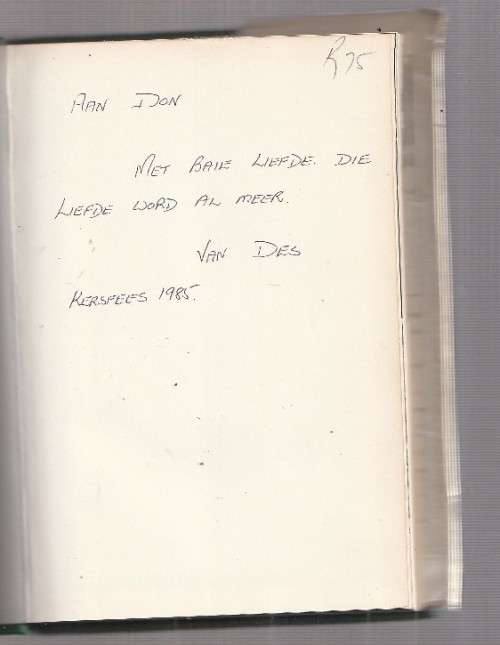 R75
AAN DON
MET BAIE LIEFDE. DIE
LIEFDE WORD AL MEER.
VAN DES
KERSFEES 1985.